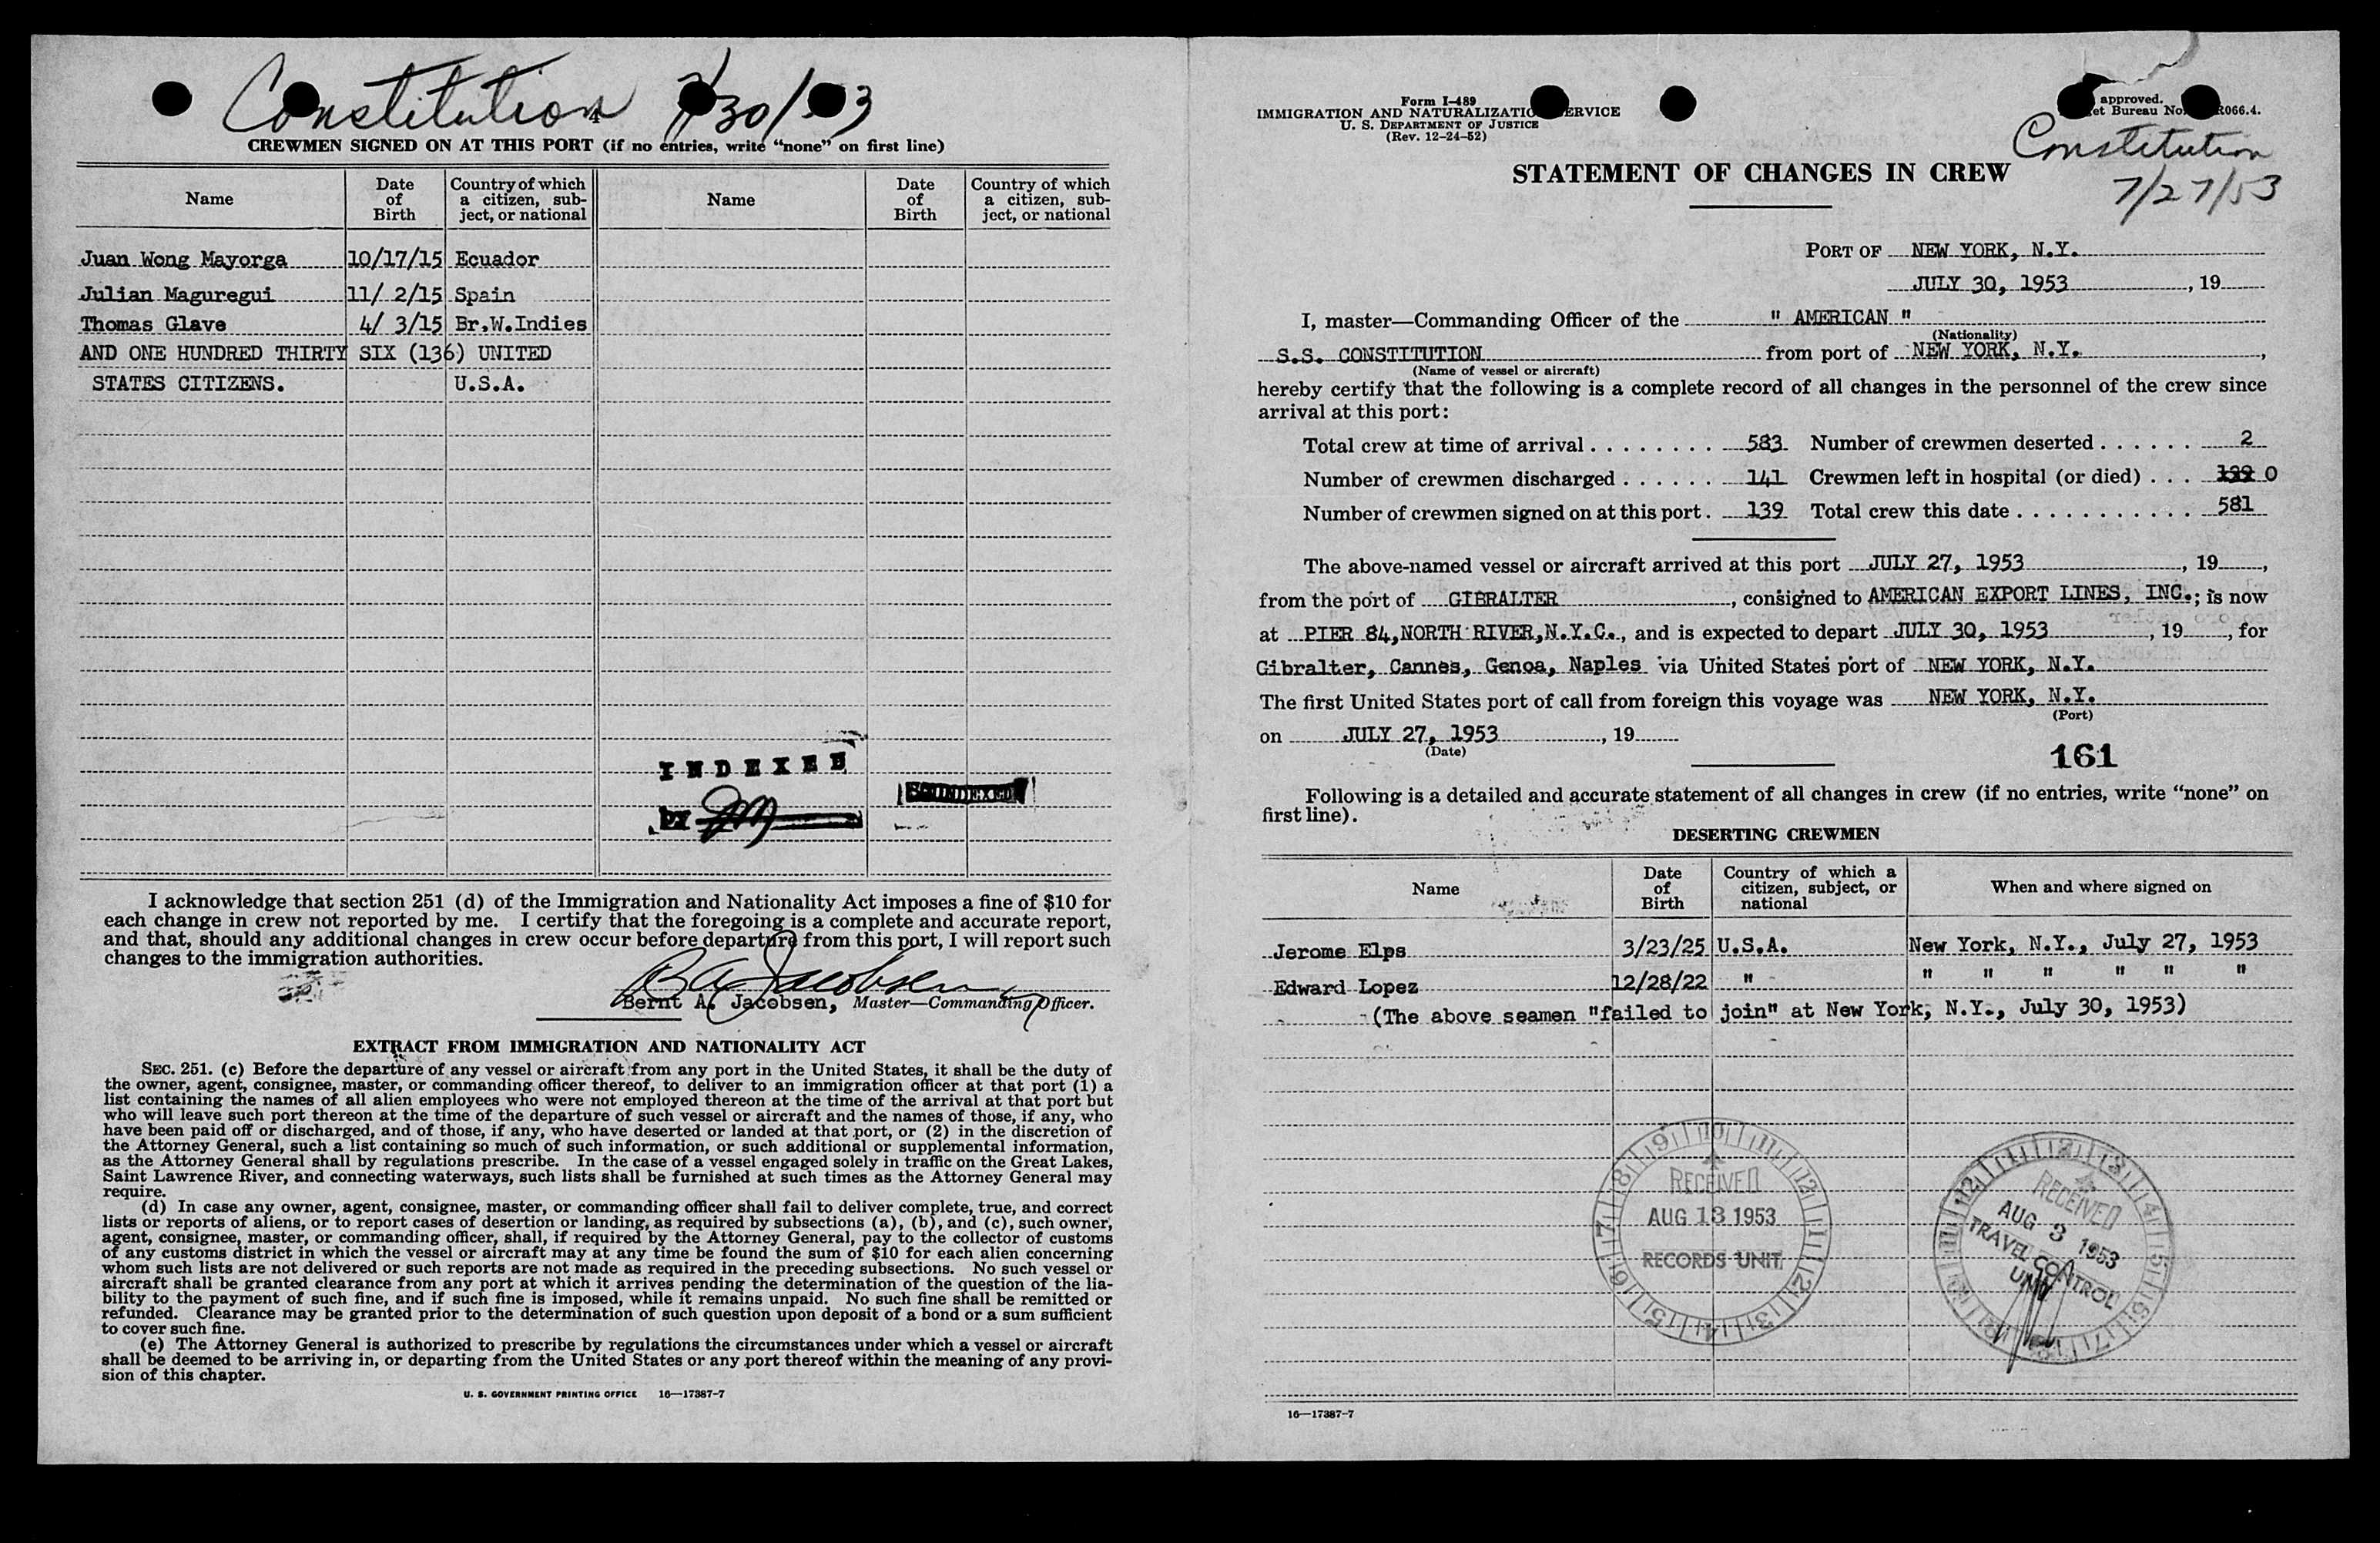 Constitution 7/30/53
CREWMEN SIGNED ON AT THIS PORT (if no entries, write “none” on first line)
Name Date of Birth Country of which a citizen, subject, or national Name Date of Birth Country of which a citizen, subject, or national
Juan Wong Mayorga 10/17/15 Ecuador
Julian Maguregui 11/ 2/15 Spain
Thomas Glave 4/ 3/15 Br.W.Indies
AND ONE HUNDRED THIRTY SIX (136) UNITED
STATES CITIZENS. U.S.A.
INDEXED
BY
I acknowledge that section 251 (d) of the Immigration and Nationality Act imposes a fine of $10 for
each change in crew not reported by me. I certify that the foregoing is a complete and accurate report,
and that, should any additional changes in crew occur before departure from this port, I will report such
changes to the immigration authorities.
B A Jacobsen
Bernt A. Jacobsen, Master—Commanding Officer.
EXTRACT FROM IMMIGRATION AND NATIONALITY ACT
SEC. 251. (c) Before the departure of any vessel or aircraft from any port in the United States, it shall be the duty of
the owner, agent, consignee, master, or commanding officer thereof, to deliver to an immigration officer at that port (1) a
list containing the names of all alien employees who were not employed thereon at the time of the arrival at that port but
who will leave such port thereon at the time of the departure of such vessel or aircraft and the names of those, if any, who
have been paid off or discharged, and of those, if any, who have deserted or landed at that port, or (2) in the discretion of
the Attorney General, such a list containing so much of such information, or such additional or supplemental information,
as the Attorney General shall by regulations prescribe. In the case of a vessel engaged solely in traffic on the Great Lakes,
Saint Lawrence River, and connecting waterways, such lists shall be furnished at such times as the Attorney General may
require.
(d) In case any owner, agent, consignee, master, or commanding officer shall fail to deliver complete, true, and correct
lists or reports of aliens, or to report cases of desertion or landing, as required by subsections (a), (b), and (c), such owner,
agent, consignee, master, or commanding officer, shall, if required by the Attorney General, pay to the collector of customs
of any customs district in which the vessel or aircraft may at any time be found the sum of $10 for each alien concerning
whom such lists are not delivered or such reports are not made as required in the preceding subsections. No such vessel or
aircraft shall be granted clearance from any port at which it arrives pending the determination of the question of the lia-
bility to the payment of such fine, and if such fine is imposed, while it remains unpaid. No such fine shall be remitted or
refunded. Clearance may be granted prior to the determination of such question upon deposit of a bond or a sum sufficient
to cover such fine.
(e) The Attorney General is authorized to prescribe by regulations the circumstances under which a vessel or aircraft
shall be deemed to be arriving in, or departing from the United States or any port thereof within the meaning of any provi-
sion of this chapter.
U. S. GOVERNMENT PRINTING OFFICE 16—17387-7
Form I-489
IMMIGRATION AND NATURALIZATION SERVICE
U. S. DEPARTMENT OF JUSTICE
(Rev. 12-24-52)
approved.
et Bureau No. R066.4.
Constitution
7/27/53
STATEMENT OF CHANGES IN CREW
PORT OF NEW YORK, N.Y.
JULY 30, 1953, 19
I, master—Commanding Officer of the " AMERICAN "
(Nationality)
S.S. CONSTITUTION from port of NEW YORK, N.Y.,
(Name of vessel or aircraft)
hereby certify that the following is a complete record of all changes in the personnel of the crew since
arrival at this port:
Total crew at time of arrival 583 Number of crewmen deserted 2
Number of crewmen discharged 141 Crewmen left in hospital (or died) 139 0
Number of crewmen signed on at this port 139 Total crew this date 581
The above-named vessel or aircraft arrived at this port JULY 27, 1953, 19,
from the port of GIBRALTER, consigned to AMERICAN EXPORT LINES, INC.; is now
at PIER 84,NORTH RIVER,N.Y.C., and is expected to depart JULY 30, 1953, 19, for
Gibralter, Cannes, Genoa, Naples via United States port of NEW YORK, N.Y.
The first United States port of call from foreign this voyage was NEW YORK, N.Y.
(Port)
on JULY 27, 1953, 19
(Date)
161
Following is a detailed and accurate statement of all changes in crew (if no entries, write “none” on
first line).
DESERTING CREWMEN
Name Date of Birth Country of which a citizen, subject, or national When and where signed on
Jerome Elps 3/23/25 U.S.A. New York, N.Y., July 27, 1953
Edward Lopez 12/28/22 " " " " " " "
(The above seamen "failed to join" at New York, N.Y., July 30, 1953)
RECEIVED
AUG 13 1953
RECORDS UNIT
RECEIVED
AUG 3 1953
TRAVEL CONTROL
UNIT
16—17387-7